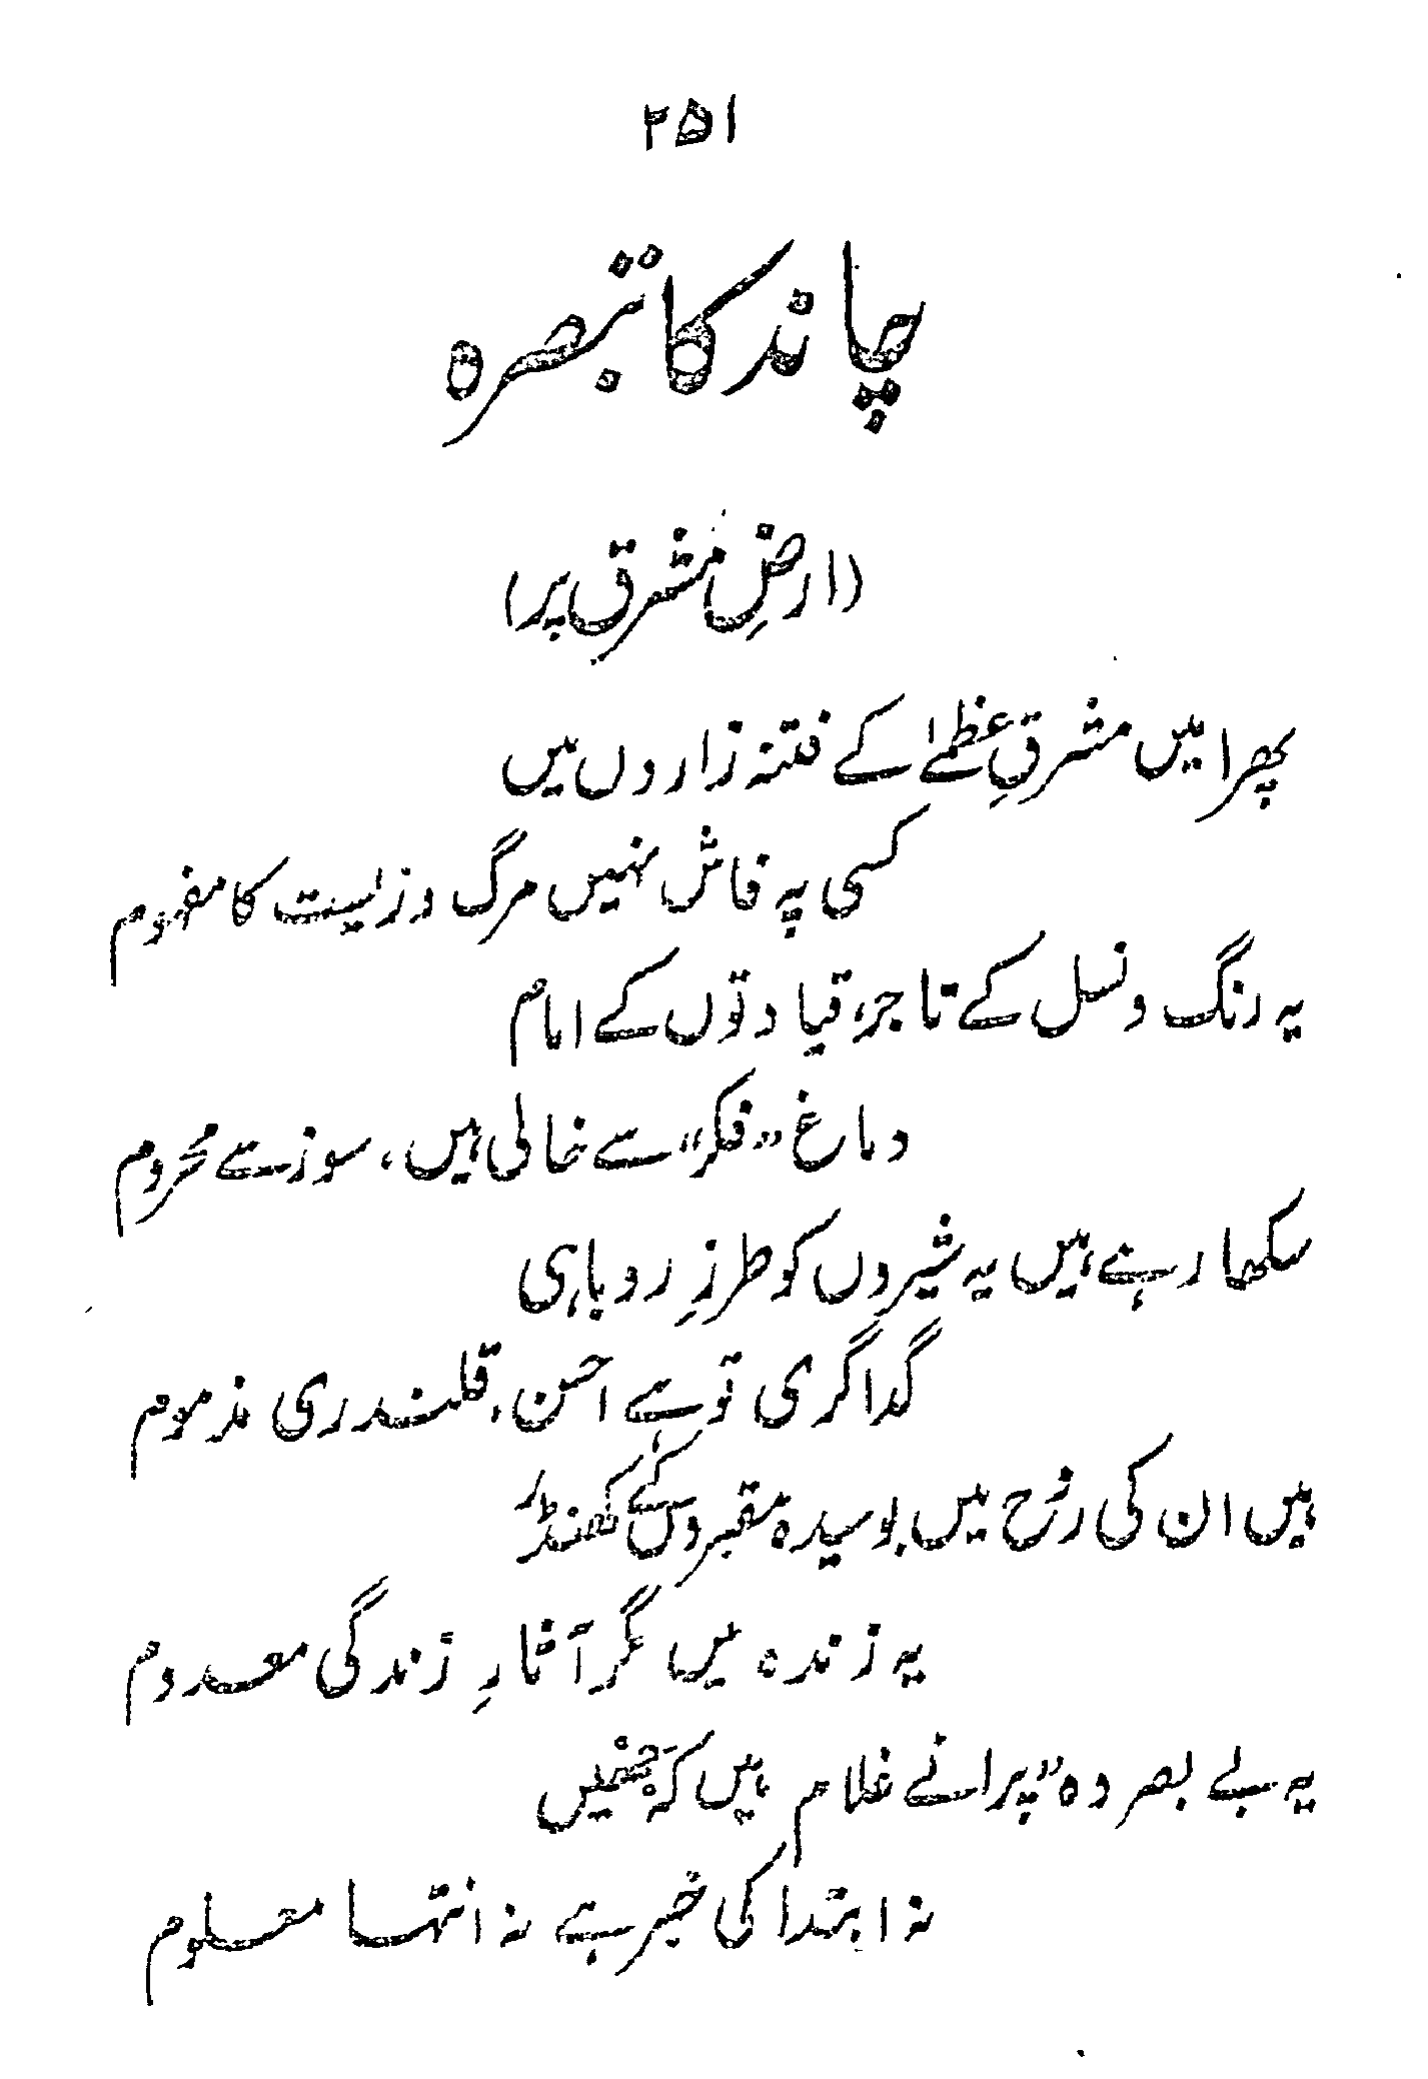 ۲۵۱
چاند کا تبصرہ
(ارضِ مشرق پر)
پھرا میں مشرقِ عظمےٰ کے فتنہ زاروں میں
کسی پہ فاش نہیں مرگ و زلیست کا مفہوم
یہ رنگ و نسل کے تاجر، قیادتوں کے امام
دماغ "فکر" سے خالی ہیں، سوز سے محروم
سکھا رہے ہیں یہ شیروں کو طرزِ روباہی
گداگری تو ہے احسن، قلندری مذموم
ہیں ان کی رُوح میں بوسیدہ مقبروں کے کھنڈر
یہ زندہ میں مگر آثارِ زندگی معدوم
یہ بے بصر وہ "پرانے غلام ہیں کہ جنہیں
نہ ابتدا کی خبر ہے نہ انتہا معلوم